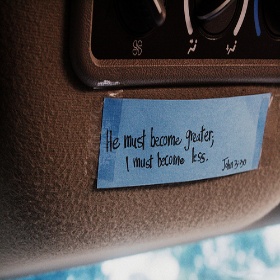 He must become greater;
I must become less.
John 3:30